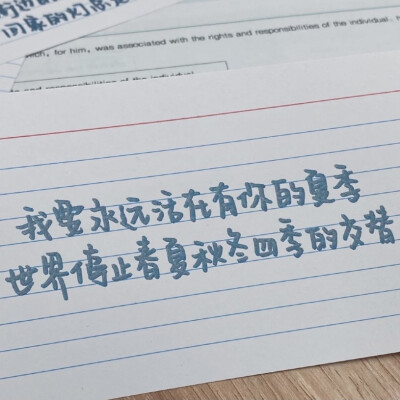 回家的灯
ich, for him, was associated with the rights and responsibilities of the individual.
and responsibilities of the individual
我要永远活在有你的夏季
世界停止春夏秋冬四季的交替